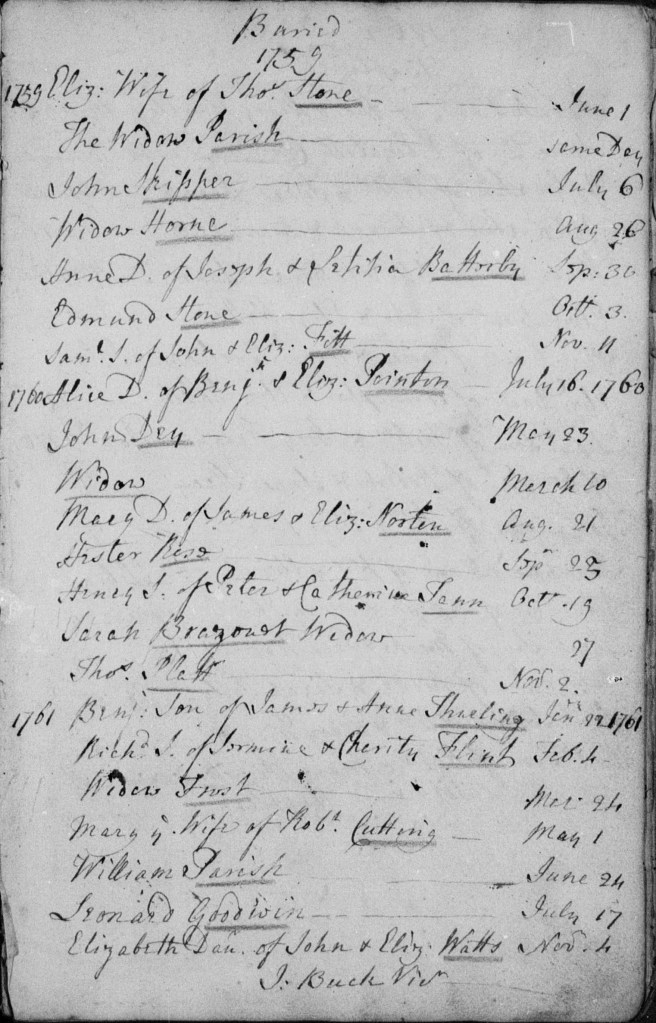 Buried
1759
1759 Eliz: Wife of Thos. Stone June 1
The Widow Parish same Day
John Skipper July 6
Widow Horne Aug 26
Anne D. of Joseph & Letitia Battorby Sep: 30
Edmund Stone Oct. 3.
Saml. S. of John & Eliz: Fitt Nov. 11
1760 Alice D. of Benjn. & Eliz: Pointon July 16. 1760
John Dey May 23.
Widow March 10
Mary D. of James & Eliz: Norton Aug. 21
Hester Rise Sepr 23
Henry S. of Peter & Catherine Tann Octr. 19
Sarah Widow 27
Thos. Platt Nov. 2.
1761 Benj: Son of James & Anne Thurling Janry 22 1761
Richd S. of & Cherity Flint Feb. 4
Widow Frost Mar: 24
Mary ye Wife of Robt. Cutting May 1
William Parish June 24
Leonard Goodwin July 17
Elizabeth Dau. of John & Eliz. Watts Novr. 4
J. Buck Vicr